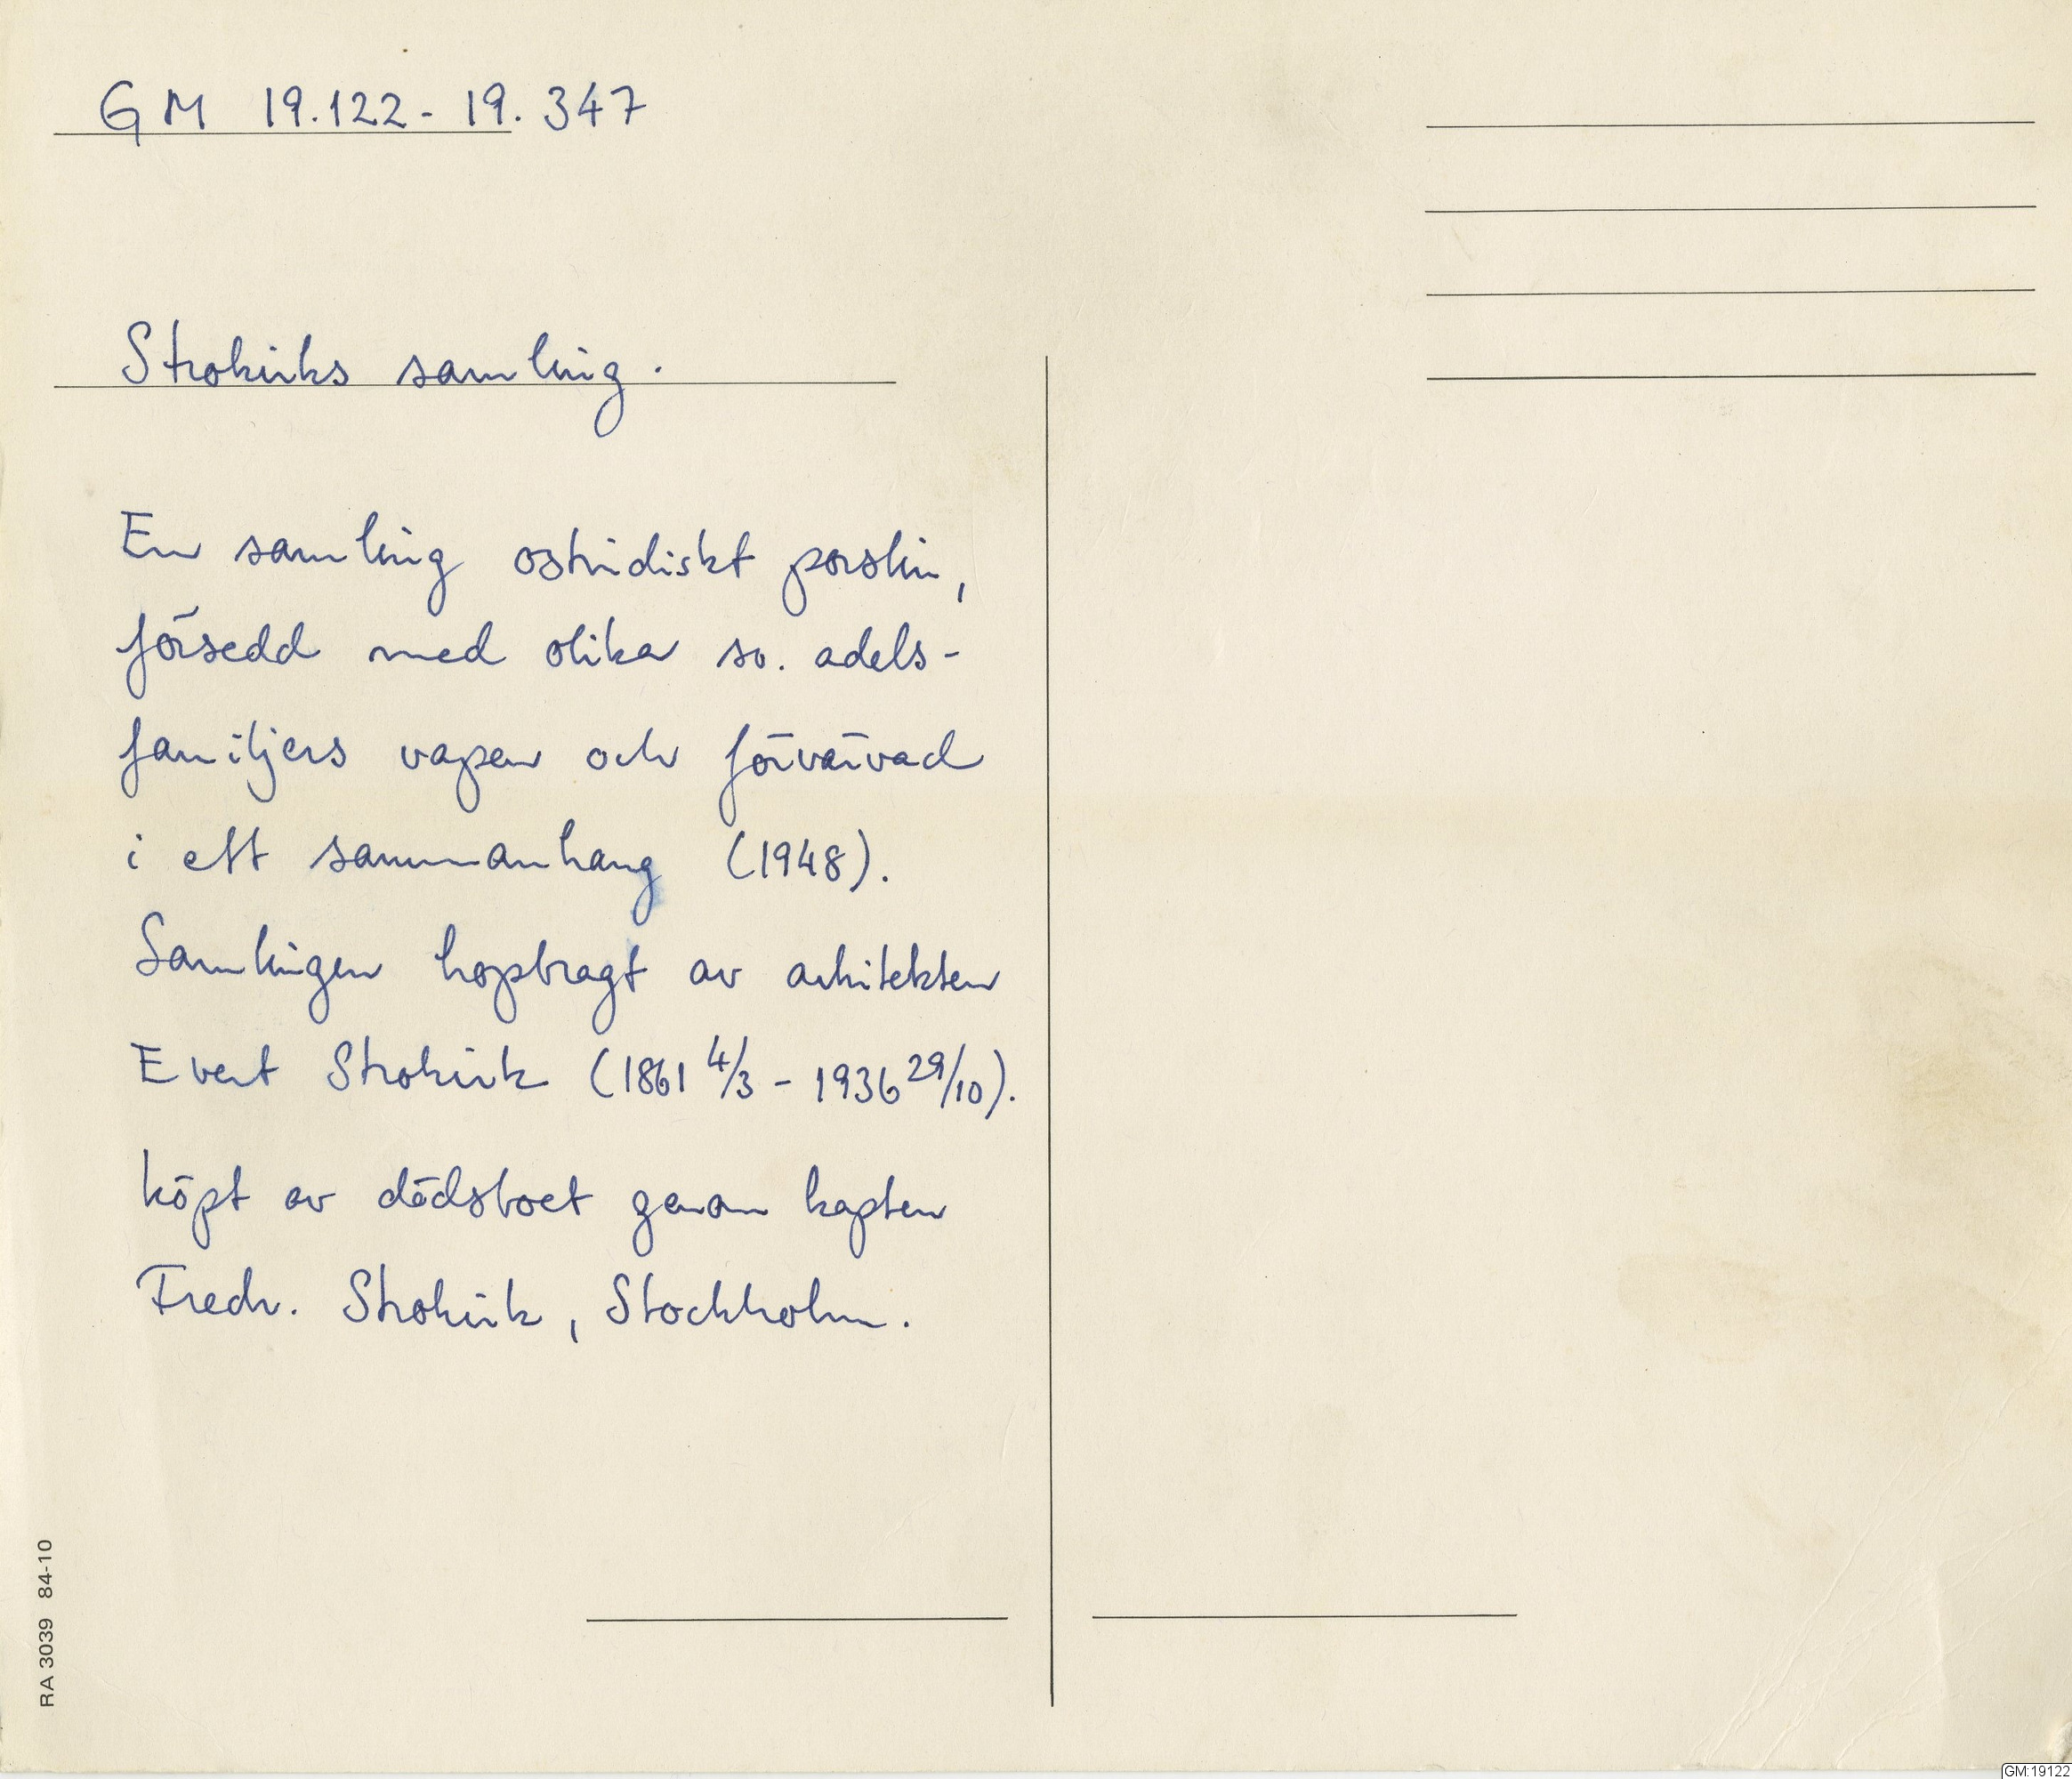 GM 19.122 - 19.347
Strokirks samling.
En samling ostindiskt porslin,
försedd med olika sv. adels-
familjers vapen och förvärvad
i ett sammanhang (1948).
Samlingen hopbragt av arkitekten
Evert Strokirk (1861 4/3 - 1936 29/10).
köpt av dödsboet genom kapten
Fredr. Strokirk, Stockholm.
RA 3039 84-10
GM:19122